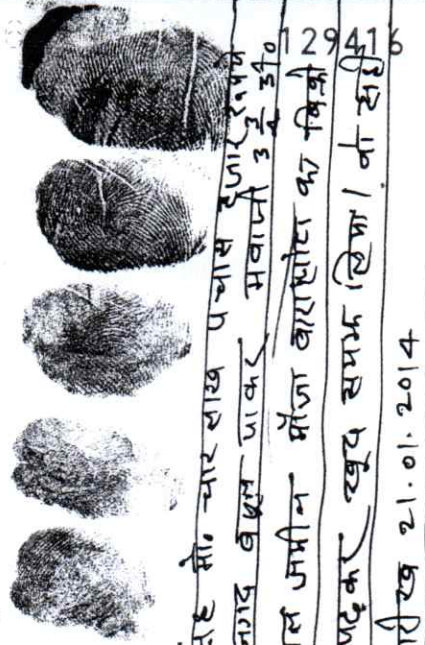 129416
मो० चार लाख पचास हजार रुपये
नगद वसूल पाकर मवाजी 3 3/4 डी०
जमीन मौजा बाराखोटा का बिक्री
पढ़कर खूब समझ लिया। वो सही
21.01.2014